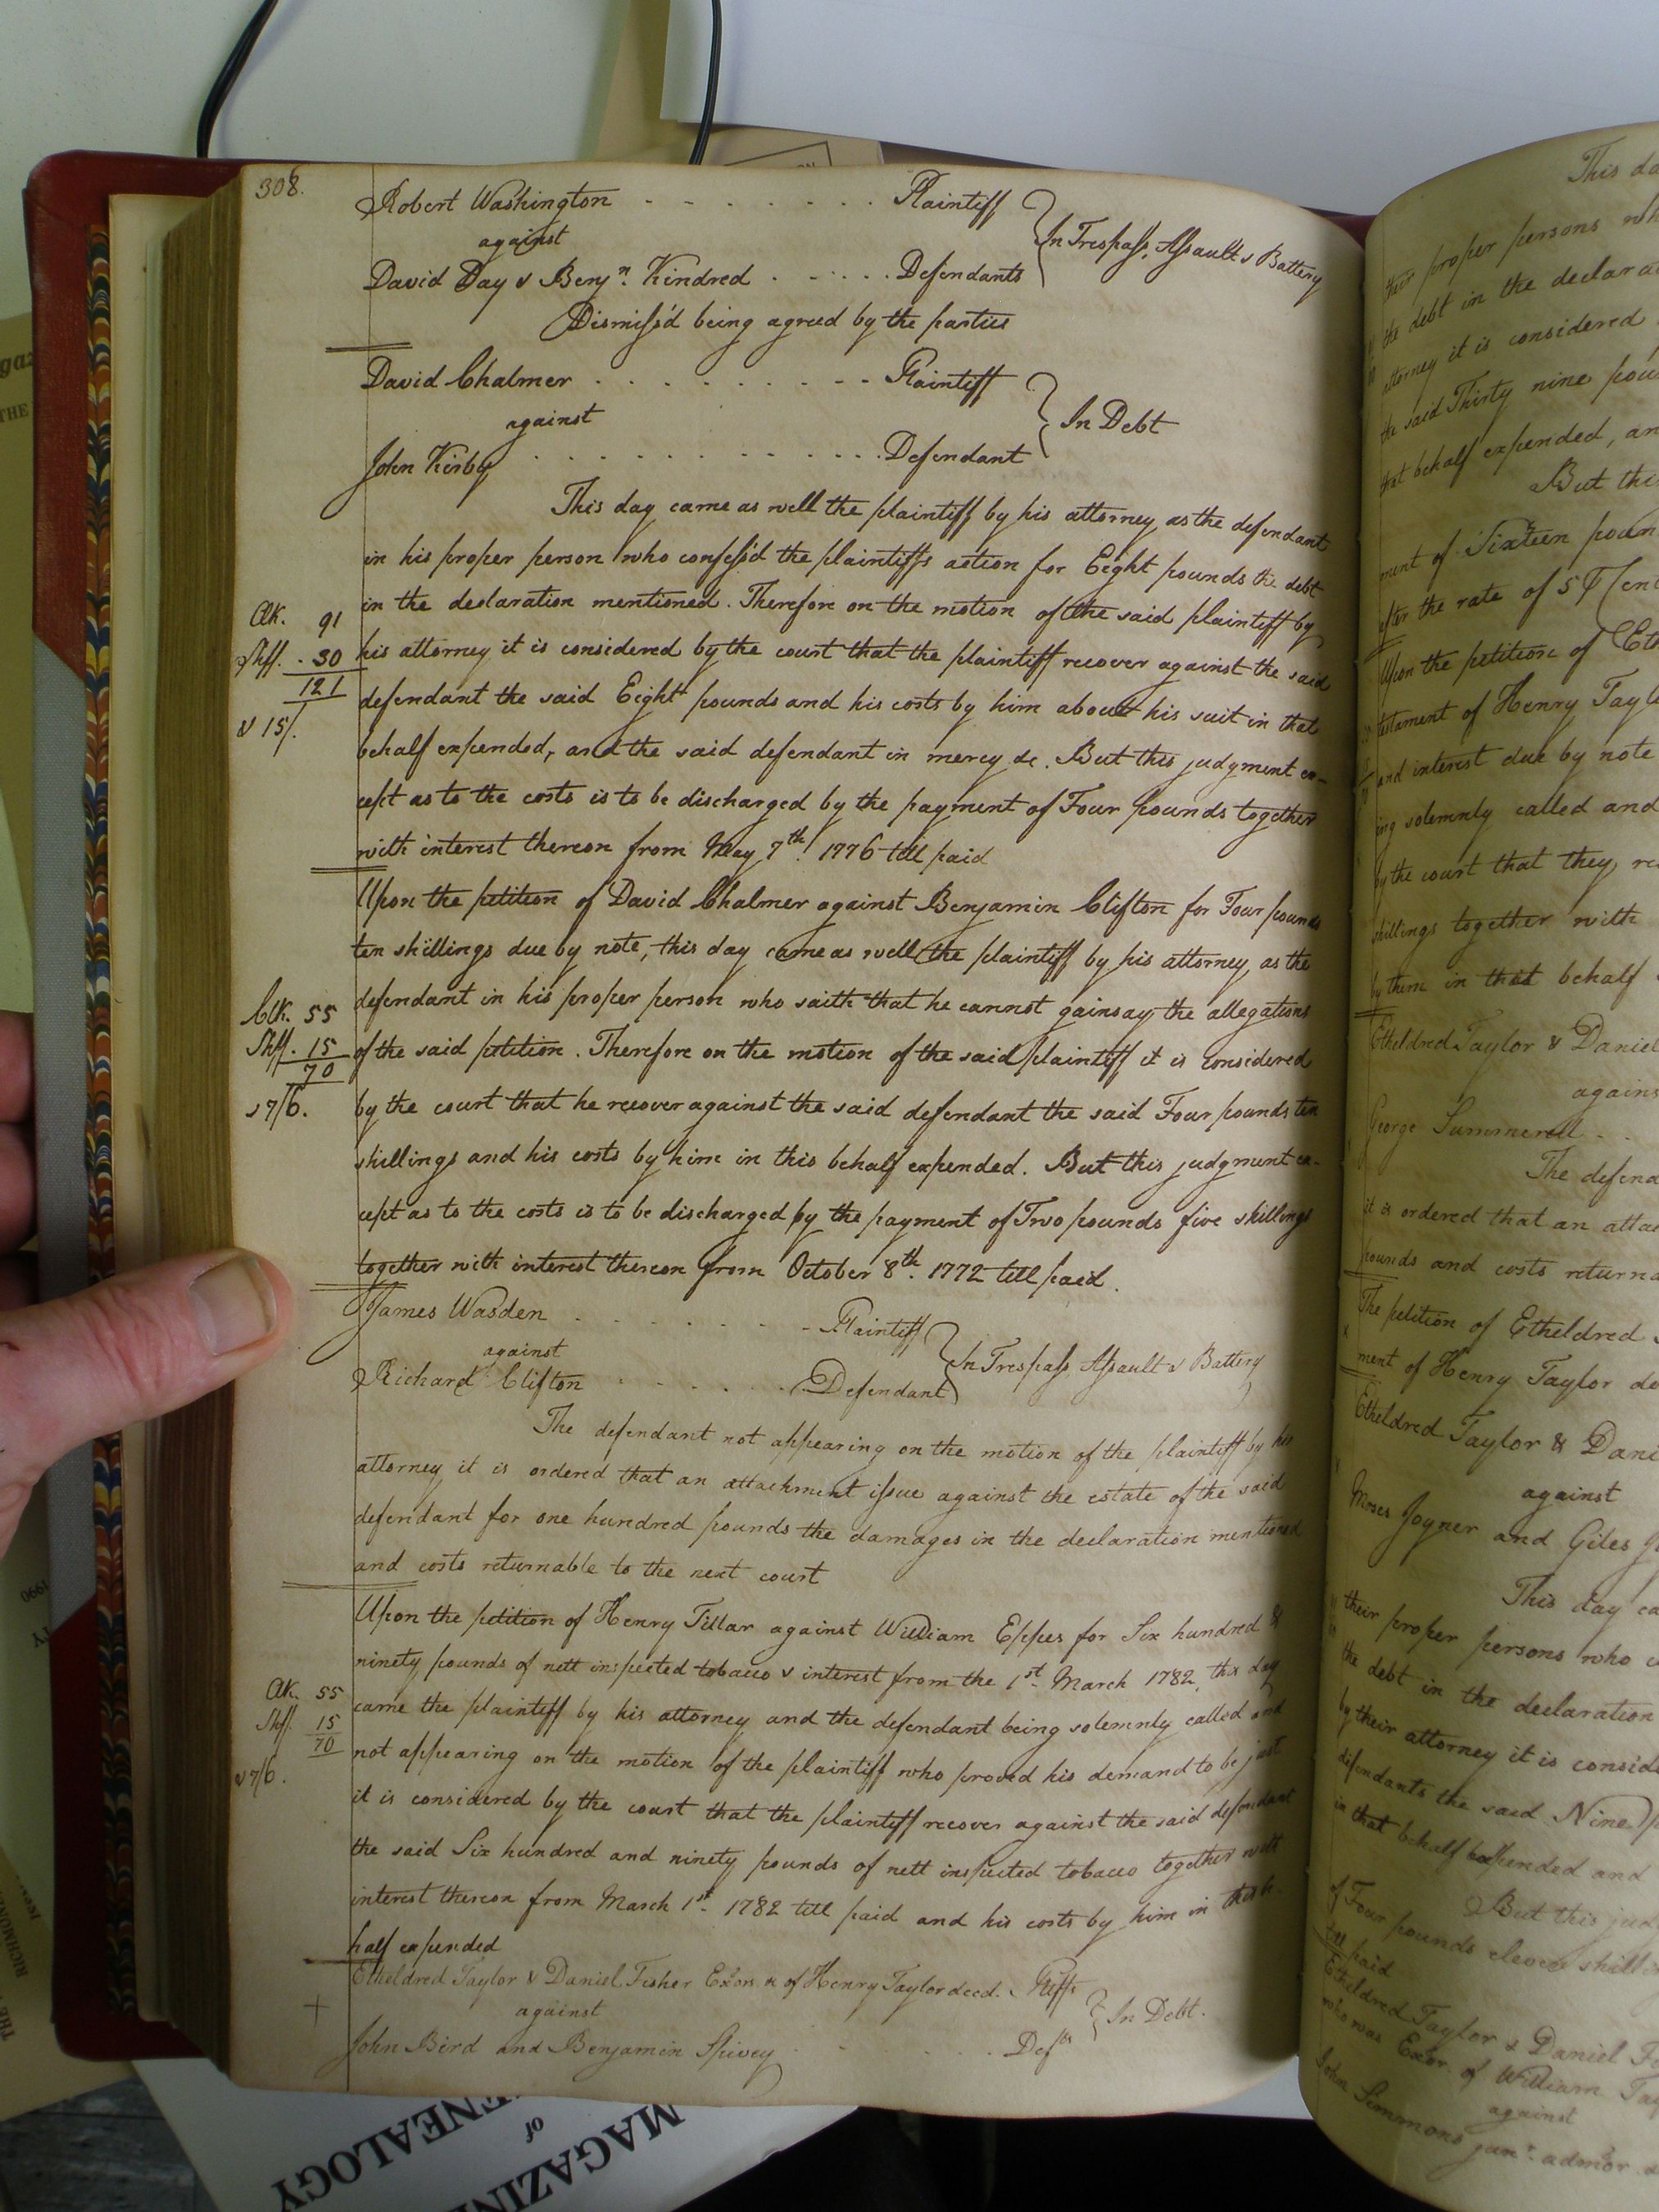 308.
Robert Washington - - - - - - - Plaintiff
against
In Trespass, Assault & Battery
David Day & Benjn. Kindred - - - - - Defendants
Dismiss'd being agreed by the parties
David Chalmer - - - - - - - - - Plaintiff
against
In Debt
John Kirby - - - - - - - - - - - - Defendant
This day came as well the plaintiff by his attorney, as the defendant
in his proper person who confess'd the plaintiffs action for Eight pounds the debt
in the declaration mentioned. Therefore on the motion of the said plaintiff by
his attorney it is considered by the court that the plaintiff recover against the said
defendant the said Eight pounds and his costs by him about his suit in that
behalf expended, and the said defendant in mercy &c. But this judgment ex-
cept as to the costs is to be discharged by the payment of Four pounds together
with interest thereon from May 7th. 1776 till paid
Clk. 91
Shff. 30
121
& 15/.
Upon the petition of David Chalmer against Benjamin Clifton for Four pounds
ten shillings due by note, this day came as well the plaintiff by his attorney, as the
defendant in his proper person who saith that he cannot gainsay the allegations
of the said petition. Therefore on the motion of the said plaintiff it is considered
by the court that he recover against the said defendant the said Four pounds ten
shillings and his costs by him in this behalf expended. But this judgment ex-
cept as to the costs is to be discharged by the payment of Two pounds five shillings
together with interest thereon from October 8th. 1772 till paid.
Clk. 55
Shff. 15
70
& 7/6.
James Wasden - - - - - - - Plaintiff
against
In Trespass Assault & Battery
Richard Clifton - - - - - - Defendant
The defendant not appearing on the motion of the plaintiff by his
attorney it is ordered that an attachment issue against the estate of the said
defendant for one hundred pounds the damages in the declaration mentioned
and costs returnable to the next court
Upon the petition of Henry Tillar against William Eppes for Six hundred &
ninety pounds of nett inspected tobacco & interest from the 1st. March 1782, this day
came the plaintiff by his attorney and the defendant being solemnly called and
not appearing on the motion of the plaintiff who proved his demand to be just
it is considered by the court that the plaintiff recover against the said defendant
the said Six hundred and ninety pounds of nett inspected tobacco together with
interest thereon from March 1st. 1782 till paid and his costs by him in this be-
half expended
Clk. 55
Shff. 15
70
& 7/6.
Etheldred Taylor & Daniel Fisher Exors &c of Henry Taylor deced. Plffs
against
In Debt.
John Bird and Benjamin Spivey - - - Defts
This da
their proper persons wh
the debt in the declarat
attorney it is considered
the said Thirty nine pou
that behalf expended, an
But thi
ment of Sixteen poun
after the rate of 5 P Cent
Upon the petition of Eth
testament of Henry Taylo
and interest due by note
ing solemnly called and
by the court that they re
shillings together with
by them in that behalf
Etheldred Taylor & Daniel
agains
George Summerell - -
The defend
it is ordered that an attac
pounds and costs returna
The petition of Etheldred
ment of Henry Taylor de
Etheldred Taylor & Dani
against
Moses Joyner and Giles Jo
This day ca
their proper persons who c
the debt in the declaration
by their attorney it is consid
defendants the said Nine p
in that behalf expended and
But this jud
of Four pounds eleven shilli
till paid
Etheldred Taylor & Daniel Fi
who was Exor. of William Tay
against
John Simmons junr. admor.
MAGAZINE
of
GENEALOGY
RICHMOND
1990